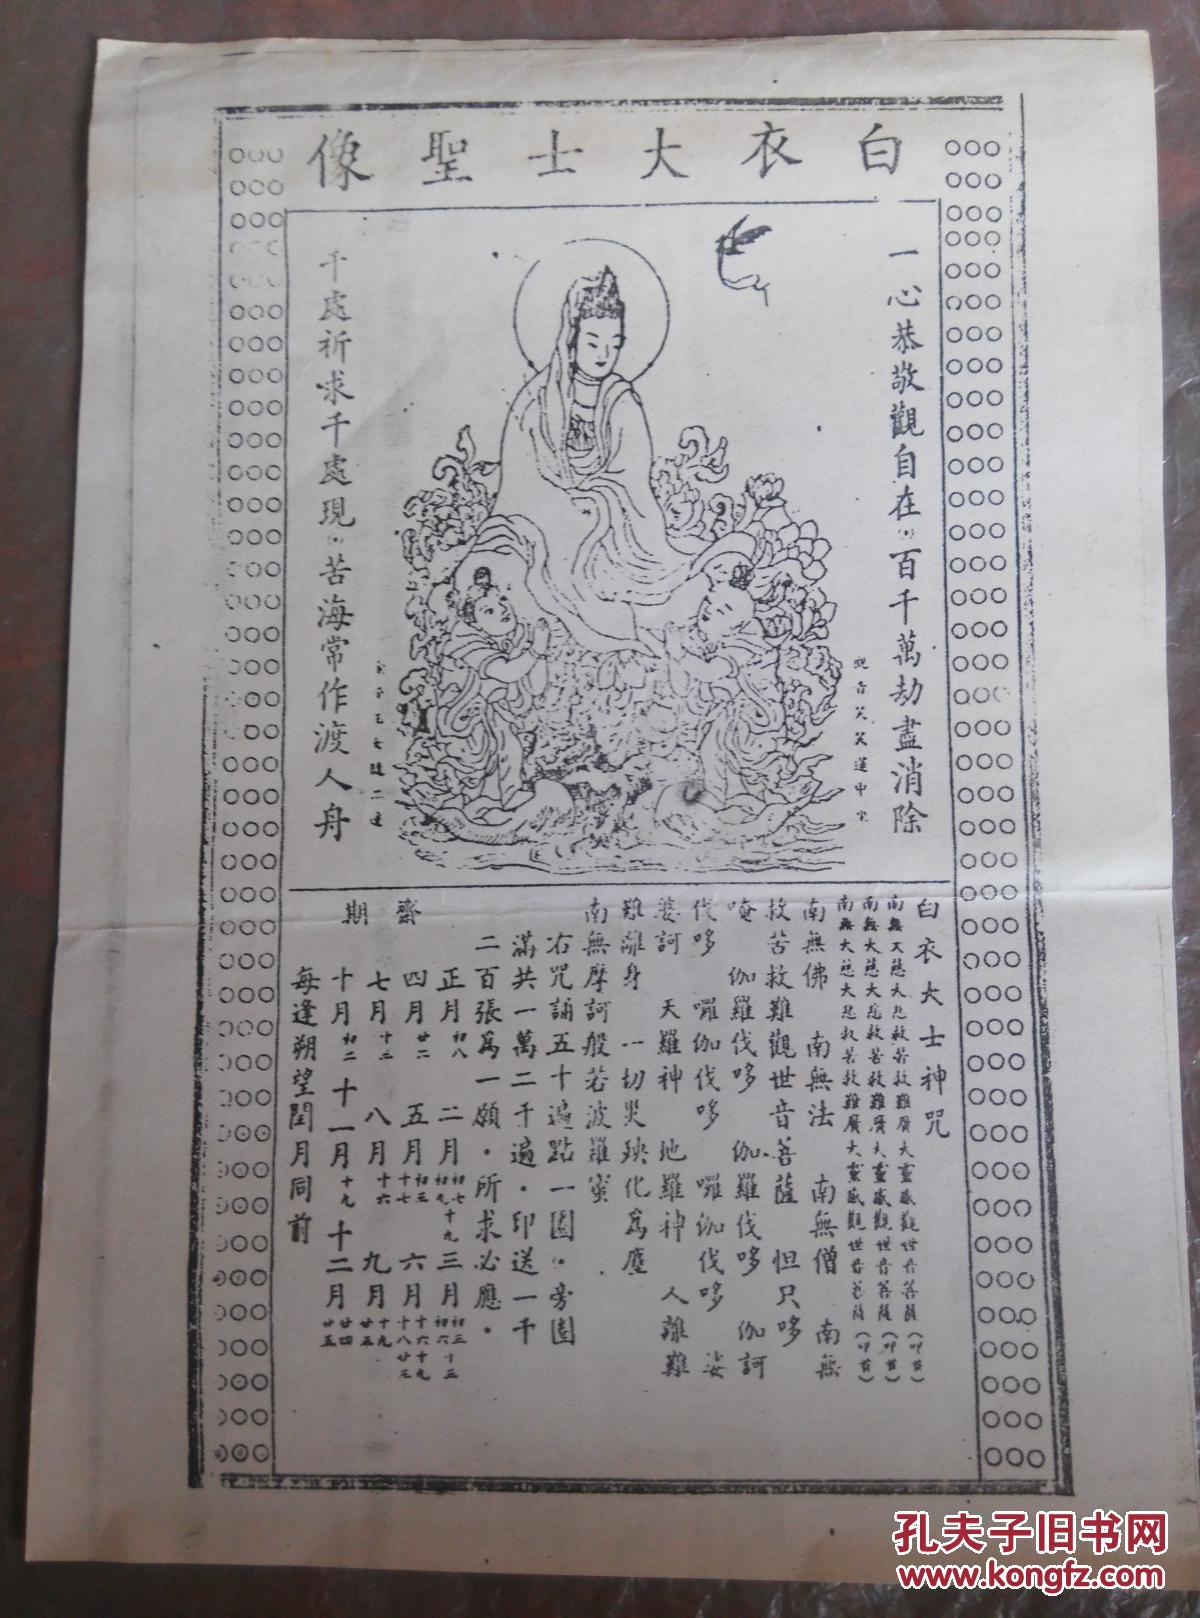 白衣大士聖像
一心恭敬觀自在·百千萬劫盡消除
千處祈求千處現·苦海常作渡人舟
白衣大士神咒
南無大慈大悲救苦救難廣大靈感觀世音菩薩(叩首)
南無大慈大悲救苦救難廣大靈感觀世音菩薩(叩首)
南無大慈大悲救苦救難廣大靈感觀世音菩薩(叩首)
南無佛 南無法 南無僧 南無
救苦救難觀世音菩薩 怛只哆
唵 伽羅伐哆 伽羅伐哆 伽訶
伐哆 囉伽伐哆 囉伽伐哆 娑
婆訶 天羅神 地羅神 人離難
難離身 一切災殃化為塵
南無摩訶般若波羅蜜
右咒誦五十遍點一圈·旁圈
滿共一萬二千遍·印送一千
二百張為一願·所求必應·
齋期
正月初八 二月初七初九十九 三月初三初六十三
四月廿二 五月初三十七 六月十六十九十八廿三
七月十三 八月十六 九月十九廿三
十月初二 十一月十九 十二月廿四廿五
每逢朔望閏月同前
孔夫子旧书网
www.kongfz.com